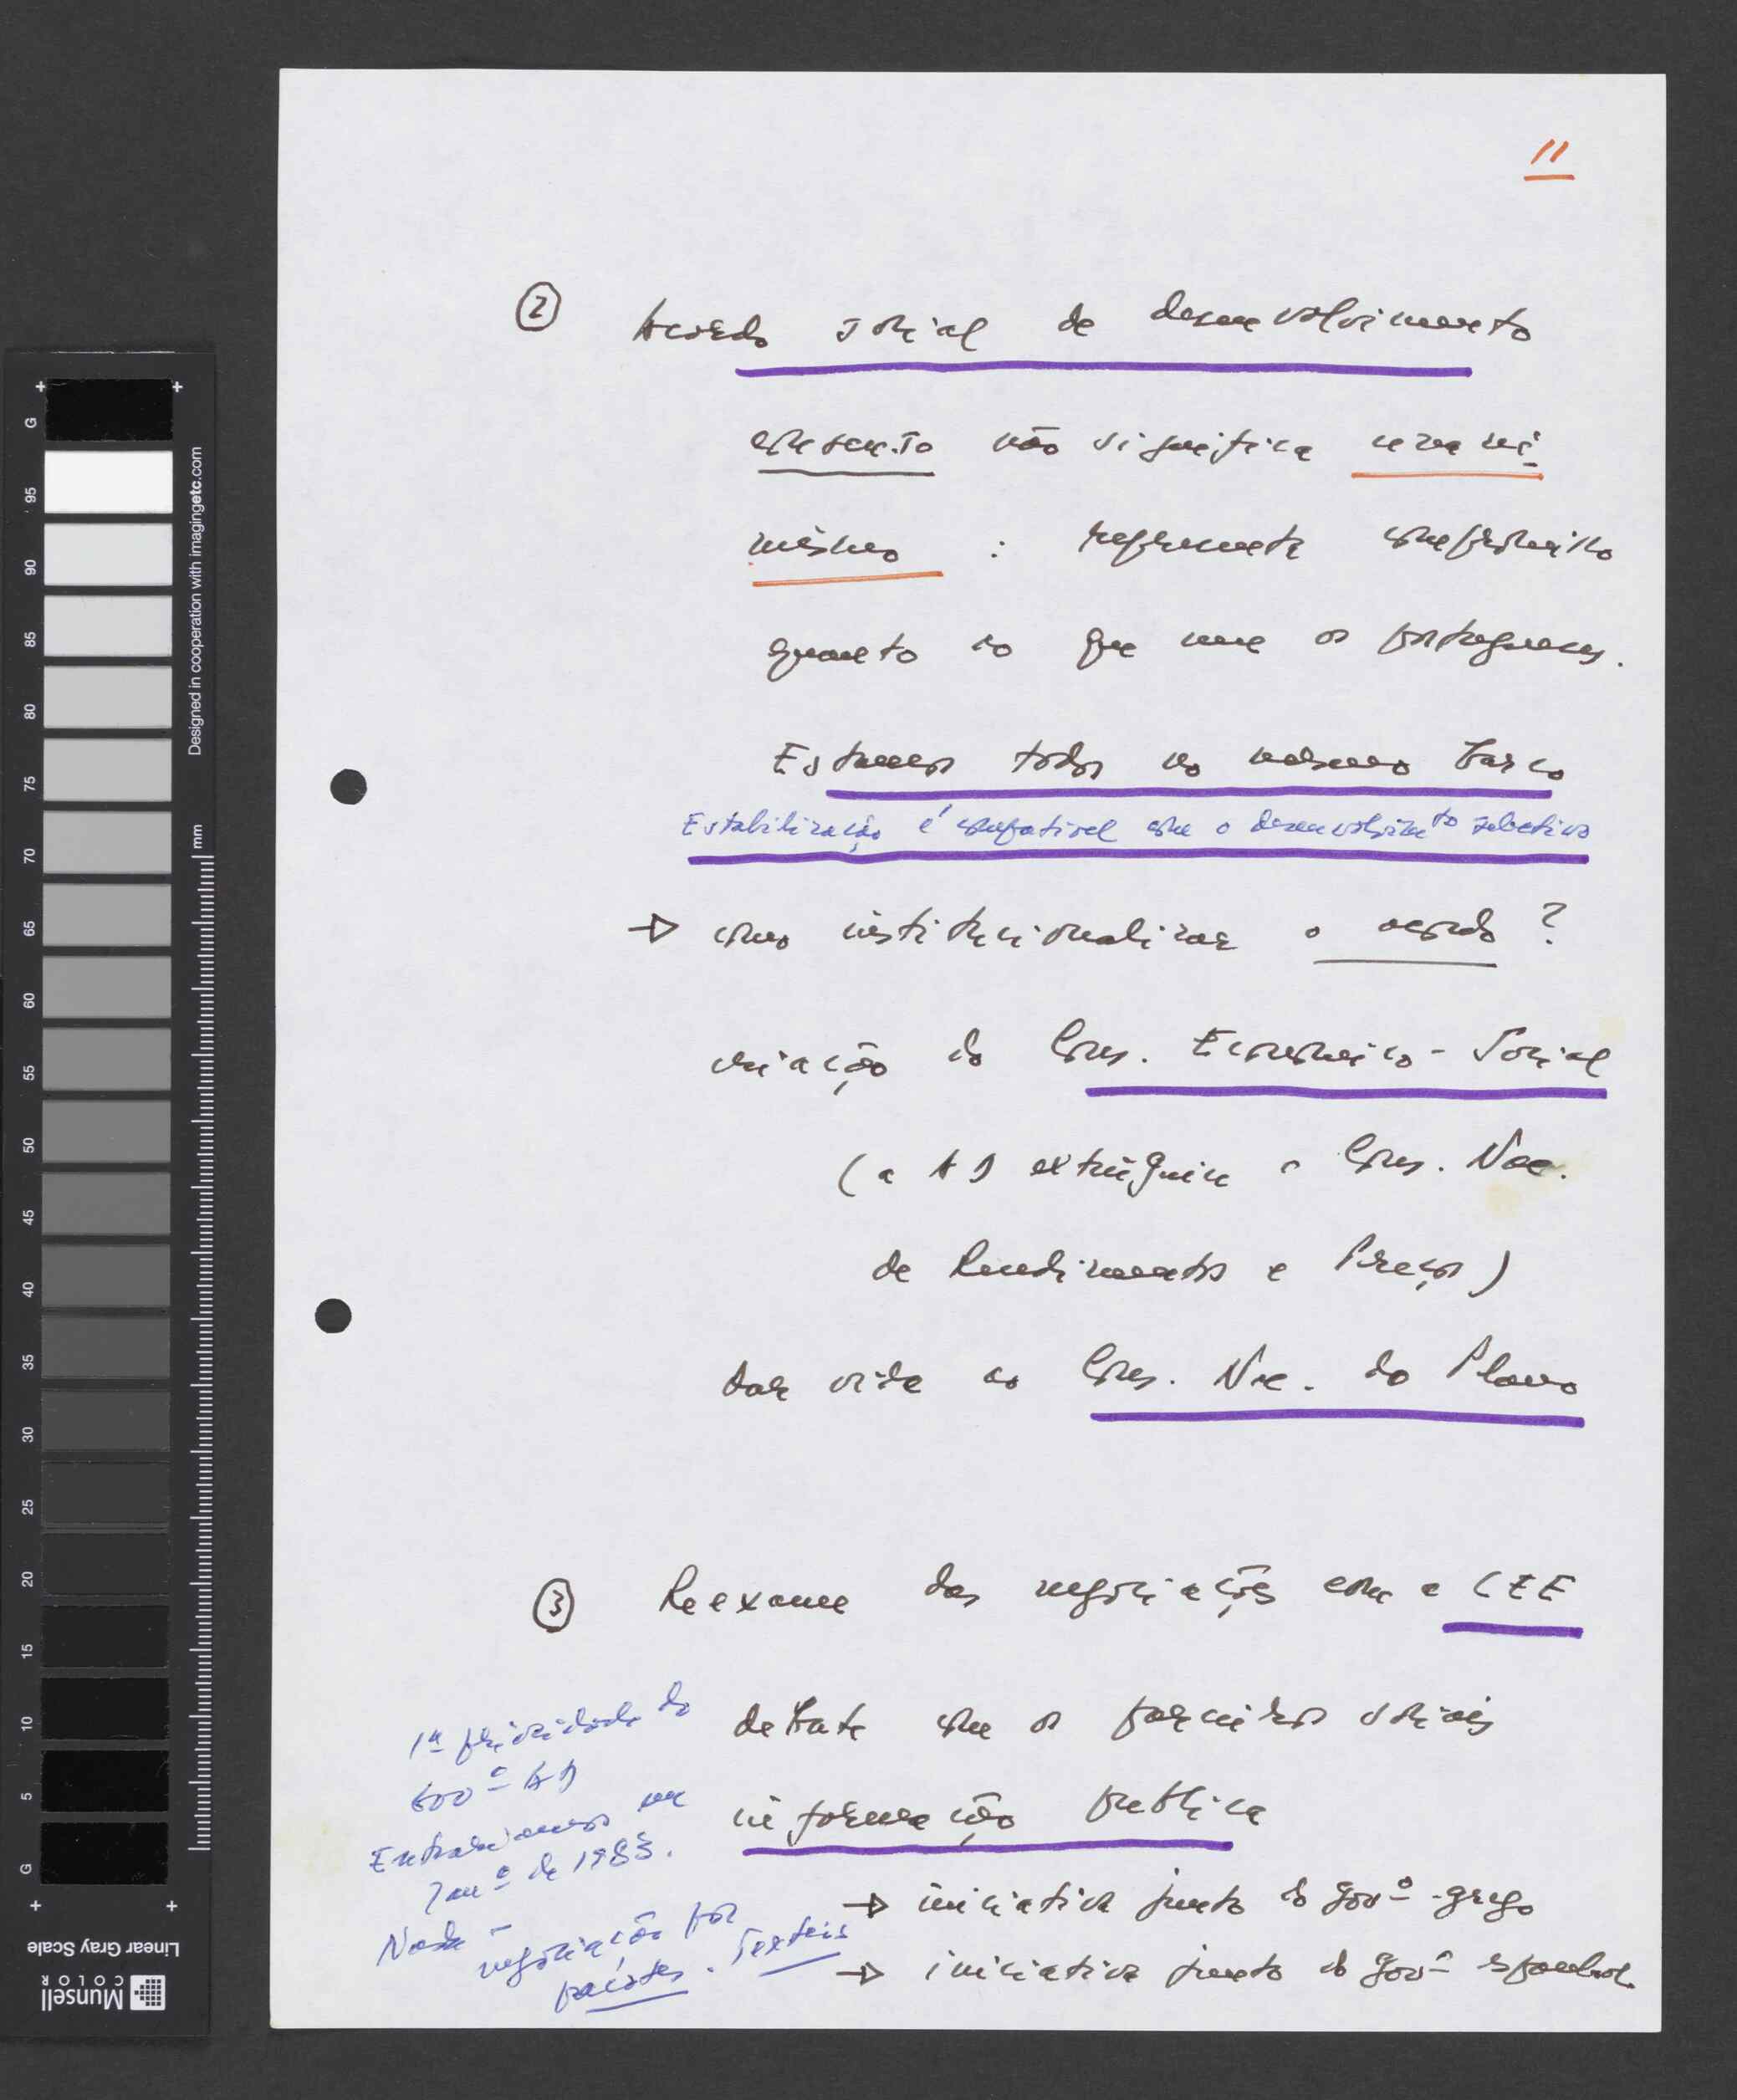 11
② Acordo social de desenvolvimento
consenso não significa unani
mismo : representa compromisso
quanto ao que une os portugueses.
Estamos todos no mesmo barco
Estabilização é compatível com o desenvolvimto selectivo
→ como institucionalizar o acordo ?
criação do Cons. Económico-Social
(a AD extinguiu o Cons. Nac.
de Rendimentos e Preços)
dar vida ao Cons. Nac. do Plano
③ Reexame das negociações com a CEE
debate com os parceiros sociais
informação publica
→ iniciativa junto do govº grego
→ iniciativa junto do govº espanhol
1ª prioridade do
Govº AD
Entrariamos em
Janº de 1983.
Nada –
negociação por
pacotes. Texteis
Designed in cooperation with imagingetc.com
mm
G 95 90 85 80 75 70 65 60 55 50 45 40 35 30 25 20 15 10 5 G
Linear Gray Scale
Munsell
COLOR